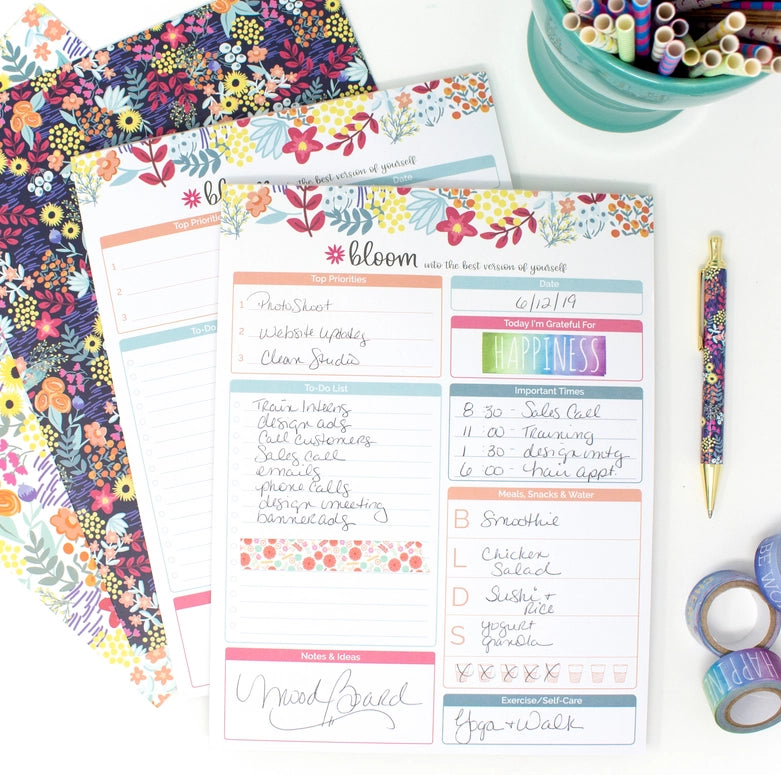 bloom the best version of yourself
Date
Top Priorities
1
2
3
To-Do
bloom into the best version of yourself
Top Priorities
1 Photo Shoot
2 Website Updates
3 Clean Studio
To-Do List
Train Interns
design ads
Call customers
Sales call
emails
phone calls
design meeting
banner ads
Notes & Ideas
Mood Board
Date
6/12/19
Today I'm Grateful For
HAPPINESS
Important Times
8 30 - Sales Call
11 00 - Training
1 30 - design mtg
6 00 - hair appt.
Meals, Snacks & Water
B Smoothie
L Chicken
Salad
D Sushi +
Rice
S yogurt
granola
Exercise/Self-Care
Yoga + Walk
BE
HAPPIN